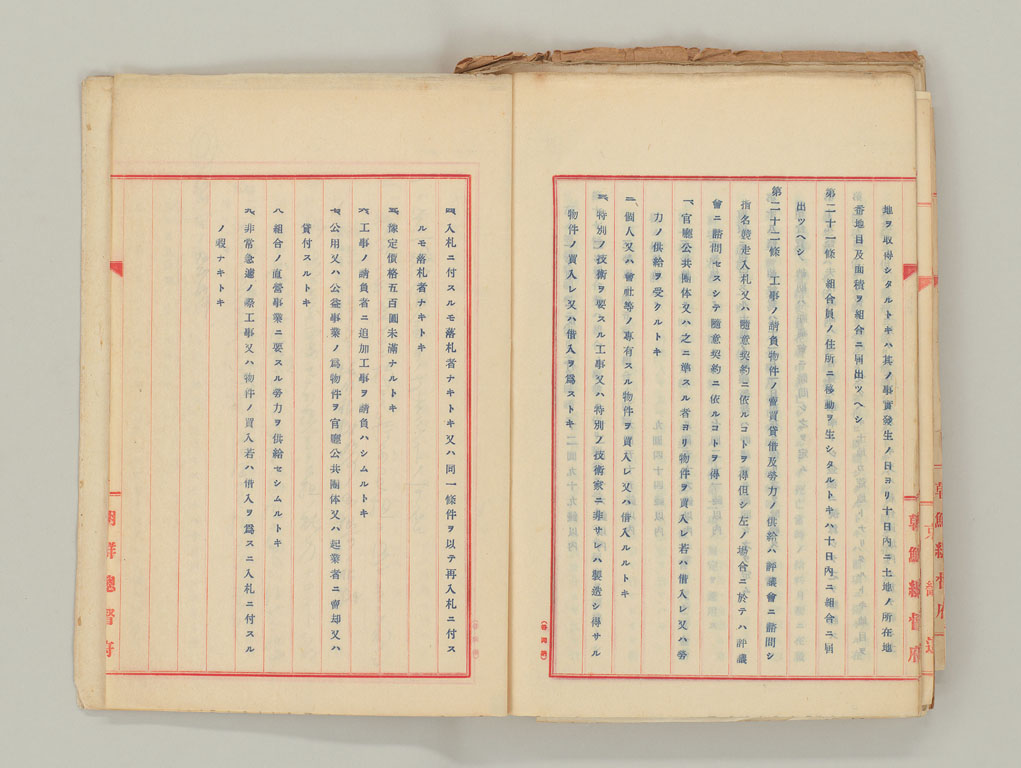 地ヲ取得シタルトキハ其ノ事實發生ノ日ヨリ十日内ニ土地ノ所在地
番地目及面積ヲ組合ニ屆出ツヘシ
第二十一條 組合員ノ住所ニ移動ヲ生シタルトキハ十日内ニ組合ニ屆
出ツヘシ
第二十二條 工事ノ請負物件ノ賣買貸借及勞力ノ供給ハ評議會ニ諮問シ
指名競走入札又ハ隨意契約ニ依ルコトヲ得但シ左ノ場合ニ於テハ評議
會ニ諮問セスシテ隨意契約ニ依ルコトヲ得
一、官廳公共團体又ハ之ニ準スル者ヨリ物件ヲ買入レ若ハ借入レ又ハ勞
力ノ供給ヲ受クルトキ
二、個人又ハ會社等ノ專有スル物件ヲ買入レ又ハ借入ルルトキ
三、特別ノ技術ヲ要スル工事又ハ特別ノ技術家ニ非サレハ製造シ得サル
物件ノ買入レ又ハ借入ヲ爲ストキ
朝鮮總督府
四、入札ニ付スルモ落札者ナキトキ又ハ同一條件ヲ以テ再入札ニ付ス
ルモ落札者ナキトキ
五、豫定價格五百圓未滿ナルトキ
六、工事ノ請負者ニ追加工事ヲ請負ハシムルトキ
七、公用又ハ公益事業ノ爲物件ヲ官廳公共團体又ハ起業者ニ賣却又ハ
貸付スルトキ
八、組合ノ直營事業ニ要スル勞力ヲ供給セシムルトキ
九、非常急遽ノ際工事又ハ物件ノ買入若ハ借入ヲ爲スニ入札ニ付スル
ノ暇ナキトキ
朝鮮總督府